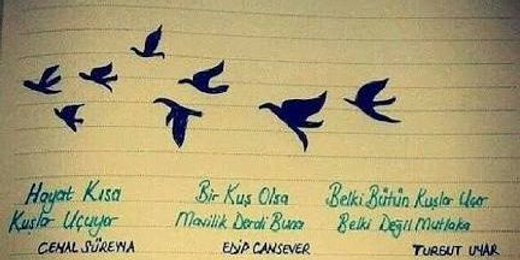 Hayat Kısa
Kuşlar Uçuyor
CEMAL SÜREYYA
Bir Kuş Olsa
Mavilik Derdi Buna
EDİP CANSEVER
Belki Bütün Kuşlar Uçar
Belki Değil Mutlaka
TURGUT UYAR